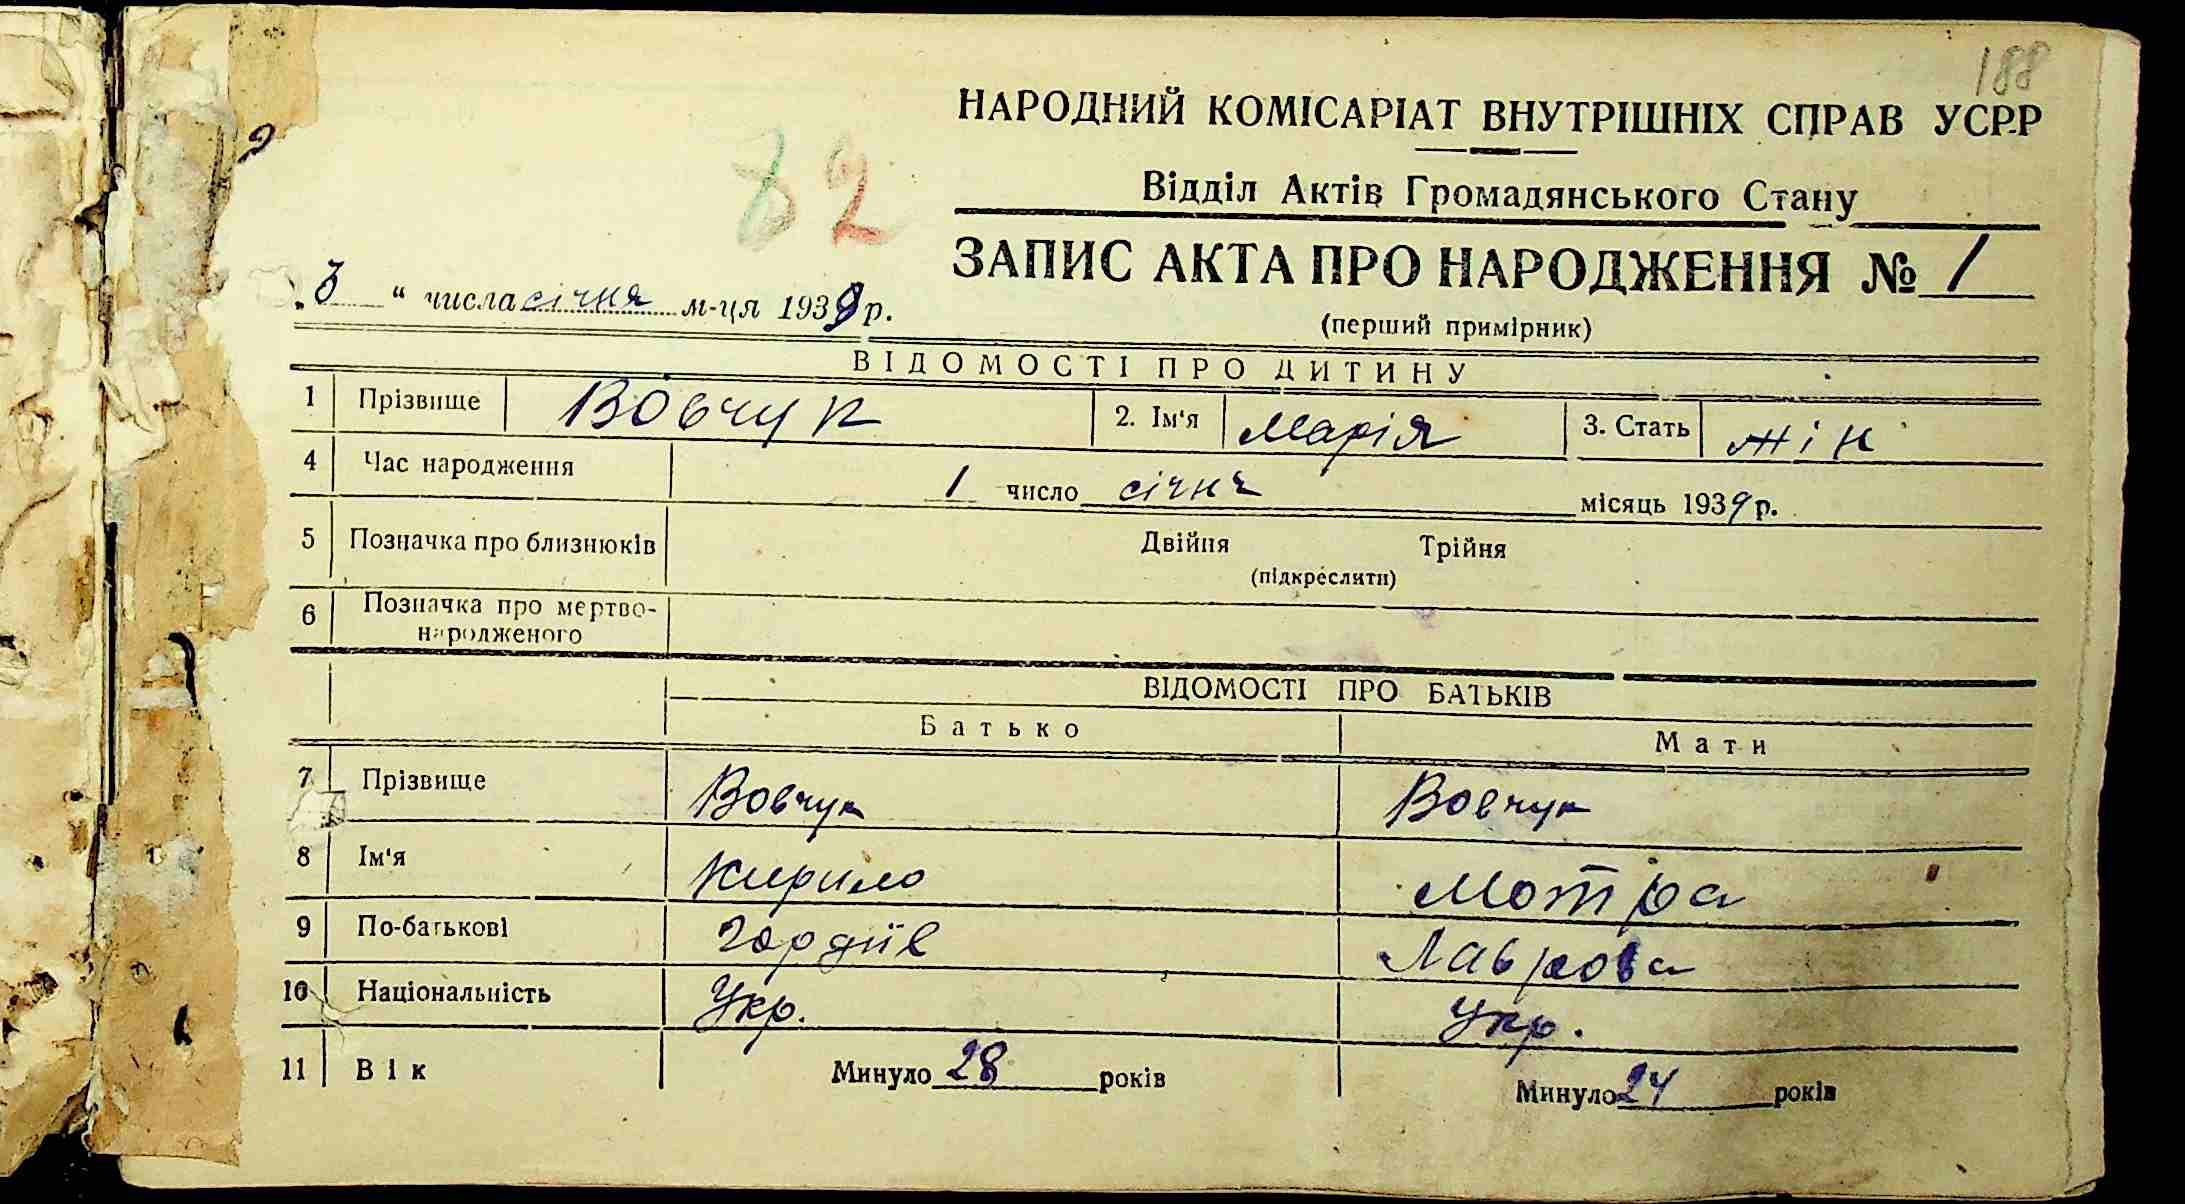 188
НАРОДНИЙ КОМІСАРІАТ ВНУТРІШНІХ СПРАВ УСРР
82
Відділ Актів Громадянського Стану
ЗАПИС АКТА ПРО НАРОДЖЕННЯ № 1
„3“ числа січня м-ця 1939 р.
(перший примірник)
ВІДОМОСТІ ПРО ДИТИНУ
1 Прізвище Вовчук 2. Ім'я Марія 3. Стать жін
4 Час народження 1 число січня місяць 1939 р.
5 Позначка про близнюків Двійня Трійня
(підкреслити)
6 Позначка про мертво-
народженого
ВІДОМОСТІ ПРО БАТЬКІВ
Батько Мати
7 Прізвище Вовчук Вовчук
8 Ім'я Кирило Мотра
9 По-батькові Гордіїв Лаврова
10 Національність Укр. Укр.
11 Вік Минуло 28 років Минуло 24 років